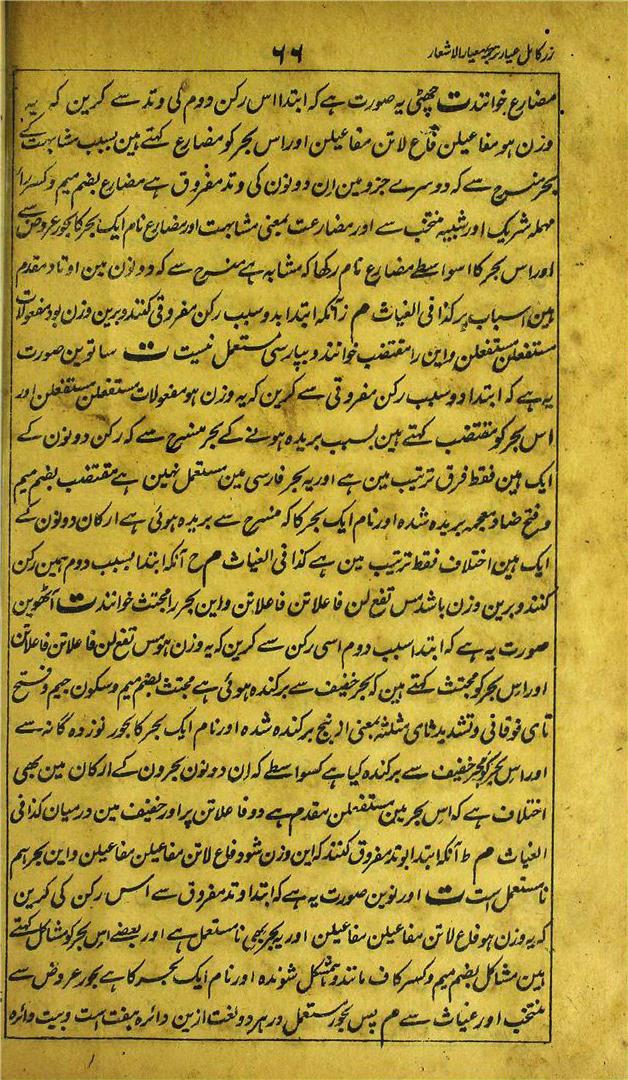 زر کامل عیار ترجمہ معیار الاشعار
۶۶
مضارع خوانند ت چھٹی یہ صورت ہے کہ ابتدا اس رکن دوم کی وتد سے کرین کہ یہ
وزن ہو مفاعیلن فاع لاتن مفاعیلن اور اس بحر کو مضارع کہتے ہین بسبب مشابہت کے
بحر منسرح سے کہ دوسرے جزو مین ان دونون کی وتد مفروق ہے مضارع بضم میم و کسر راے
مہملہ شریک اور شبیہ منتخب سے اور مضارعت بمعنی مشابہت اور مضارع نام ایک بحر کا بحور عروض سے
اور اس بحر کا اسواسطے مضارع نام رکھا کہ مشابہ ہے منسرح سے کہ دونون مین اوتاد مقدم
ہین اسباب پر کذا فی الغیاث م ز آنکہ ابتدا بدو سبب رکن مفروقی کنند و برین وزن بود مفعولات
مستفعلن مستفعلن و این را مقتضب خوانند و بپارسی مستعمل نیست ت ساتوین صورت
یہ ہے کہ ابتدا دو سبب رکن مفروقی سے کرین کہ یہ وزن ہو مفعولات مستفعلن مستفعلن اور
اس بحر کو مقتضب کہتے ہین بسبب بریدہ ہونے کے بحر منسرح سے کہ رکن دونون کے
ایک ہین فقط فرق ترتیب مین ہے اور یہ بحر فارسی مین مستعمل نہین ہے مقتضب بضم میم
و فتح ضاد معجمہ بریدہ شدہ اور نام ایک بحر کا کہ منسرح سے بریدہ ہوئی ہے ارکان دونون کے
ایک ہین اختلاف فقط ترتیب مین ہے کذا فی الغیاث م ح آنکہ ابتدا بسبب دوم ہمین رکن
کنند و برین وزن باشد مس تفع لن فاعلاتن فاعلاتن و این بحر را مجتث خوانند ت آٹھوین
صورت یہ ہے کہ ابتدا سبب دوم اسی رکن سے کرین کہ یہ وزن ہو مس تفع لن فاعلاتن فاعلاتن
اور اس بحر کو مجتث کہتے ہین کہ بحر خفیف سے برکندہ ہوئی ہے مجتث بضم میم و سکون جیم و فتح
تای فوقانی و تشدید ثای مثلثہ بمعنی از بیخ برکندہ شدہ اور نام ایک بحر کا بحور نوزدہ گانہ سے
اور اس بحر کو بحر خفیف سے برکندہ کیا ہے کسواسطے کہ ان دونون بحرون کے ارکان مین بھی
اختلاف ہے کہ اس بحر مین مستفعلن مقدم ہے دو فاعلاتن پر اور خفیف مین درمیان کذا فی
الغیاث م ط آنکہ ابتدا بوتد مفروق کنند کہ این وزن شود فاع لاتن مفاعیلن مفاعیلن و این بحر ہم
نامستعمل است ت اور نوین صورت یہ ہے کہ ابتدا وتد مفروق سے اس رکن کی کرین
کہ یہ وزن ہو فاع لاتن مفاعیلن مفاعیلن اور یہ بحر بھی نامستعمل ہے اور بعضے اس بحر کو مشاکل کہتے
ہین مشاکل بضم میم و کسر کاف مانند و ہمشکل شوندہ اور نام ایک بحر کا ہے بحور عروض سے
منتخب اور غیاث سے م پس بحور مستعمل در ہر دو لغت ازین دائرہ ہفت است و بیت دائرہ